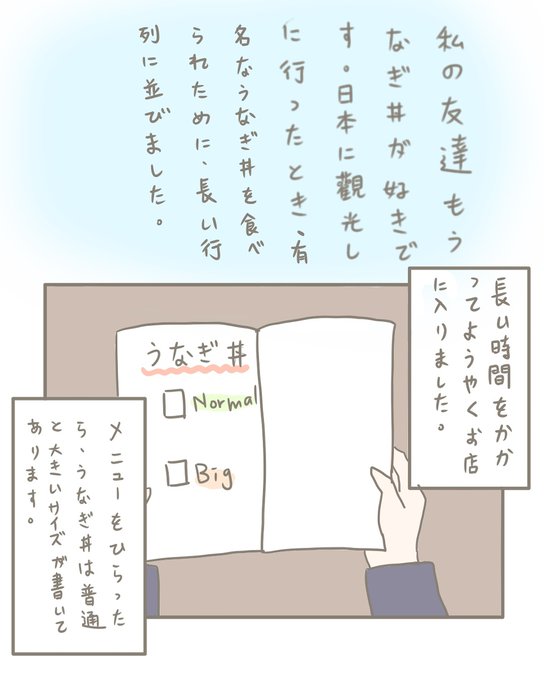 私の友達もう
なぎ丼が好きで
す。日本に觀光し
に行ったとき、有
名なうなぎ丼を食べ
られために、長い行
列に並びました。
長い時間をかか
ってようやくお店
に入りました。
うなぎ丼
Normal
Big
メニューをひらった
ら、うなぎ丼は普通
と大きいサイズが書いて
あります。